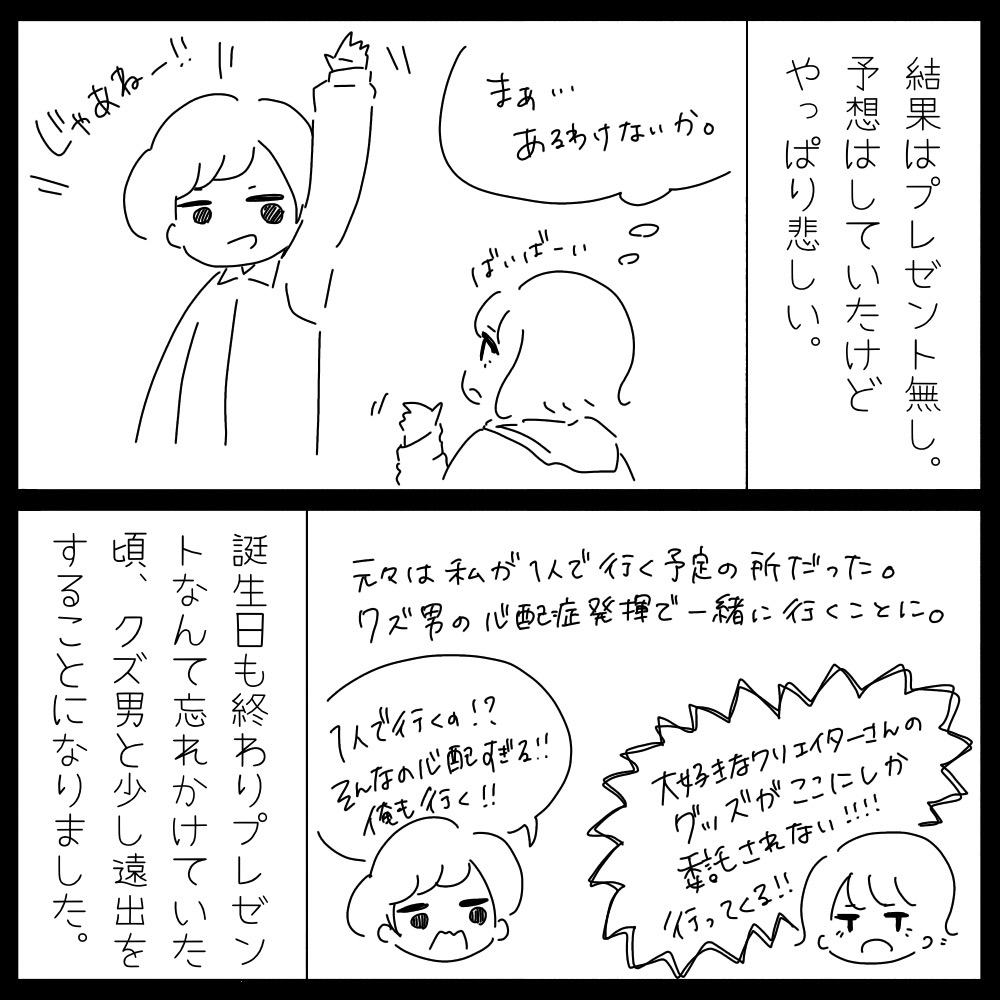 結果はプレゼント無し。
予想はしていたけど
やっぱり悲しい。
まぁ…
あるわけないか。
ばいばーい
じゃあねー!!
元々は私が1人で行く予定の所だった。
クズ男の心配症発揮で一緒に行くことに。
大好きなクリエイターさんの
グッズがここにしか
委託されない!!!!
行ってくる!!
1人で行くの!?
そんなの心配すぎる!!
俺も行く!!
誕生日も終わりプレゼン
トなんて忘れかけていた
頃、クズ男と少し遠出を
することになりました。